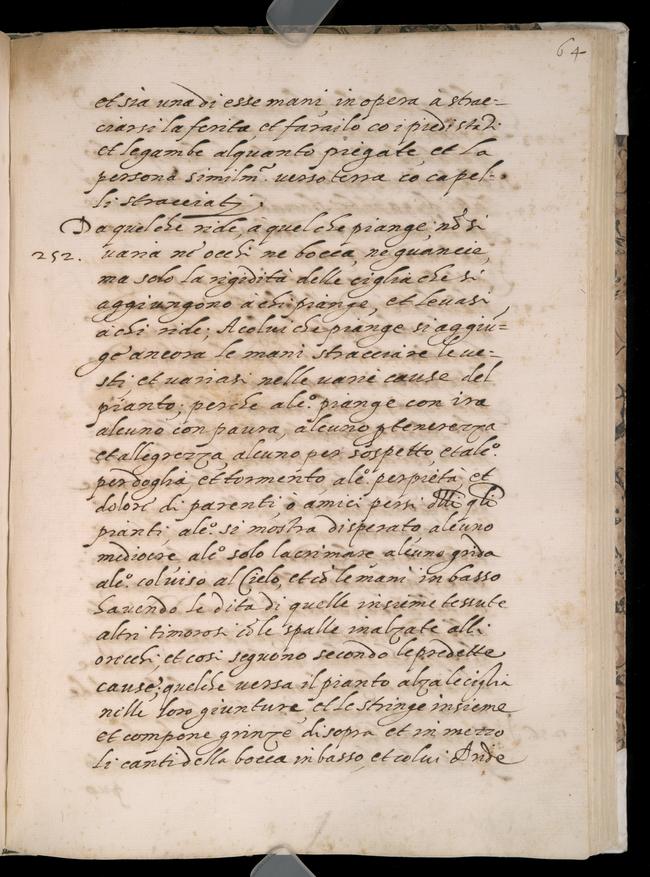 64
et sia una di esse mani in opera a strac=
ciarsi la ferita et farailo co i piedi stãti
et le gambe alquanto piegate et la
persona similm.te verso terra cõ capel=
li stracciati.
Da quel che ride, a quel che piange nõ si
252. varia ne occhi ne bocca, ne guancie,
ma solo la rigidità delle ciglia che si
aggiungono a chi piange, et levasi,
à chi ride; A colui che piange si aggiũ=
ge ancora le mani stracciare le ve=
sti et variasi nelle varie cause del
pianto; perche alc.o piange con ira
alcuno con paura, alcuno p tenerezza
et allegrezza, alcuno per sospetto, et alc.o
per doglia et tormento alc.o per pietà, et
dolore di parenti ò amici persi
pianti alc.o si mostra disperato alcuno
mediocre alc.o solo lacrimare alcuno grida
alc.o col viso al Cielo, et cõ le mani in basso
havendo le dita di quelle insieme tessute
altri timorosi cõ le spalle inalzate alli
orecchi; et cosi seguono secondo le predette
cause; quel che versa il pianto alza le ciglia
nelle loro giunture et le stringe insieme
et compone grinze di sopra et in mezzo
li canti della bocca in basso, et colui che ride